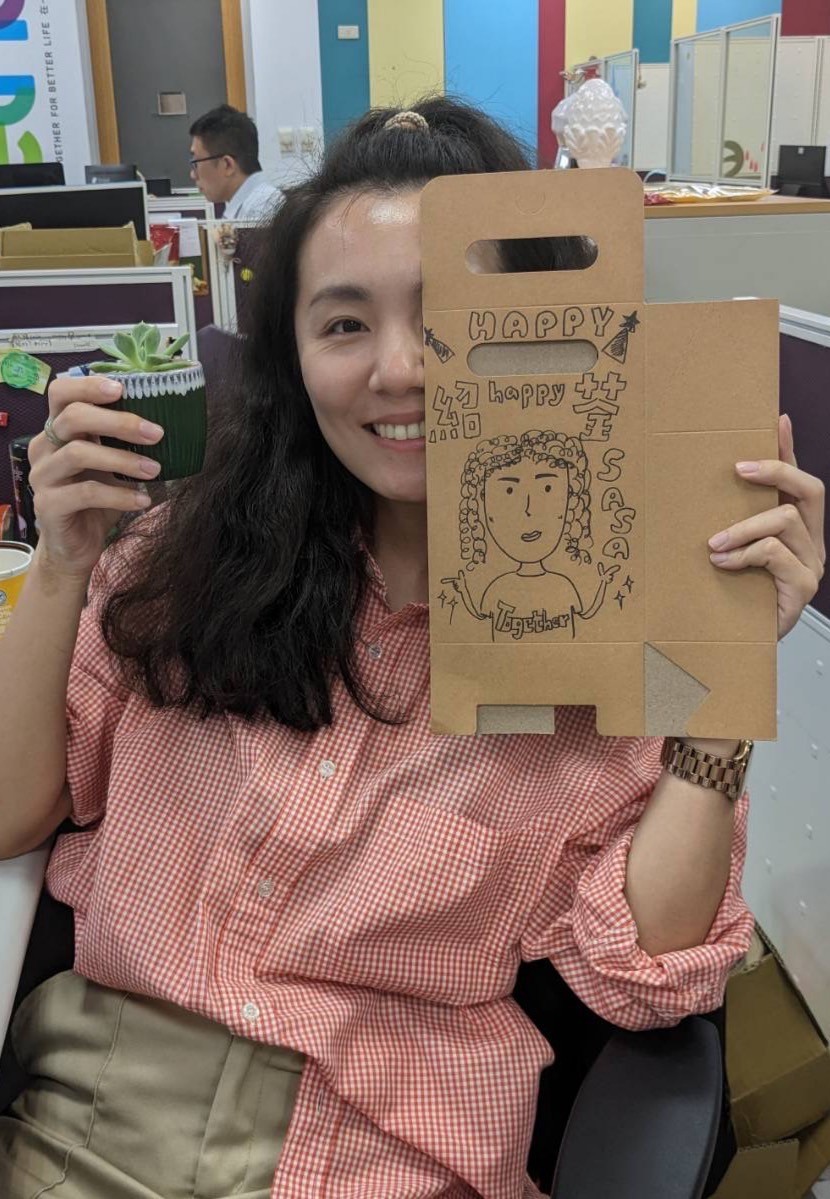 GETHER FOR BETTER LIFE
HAPPY
紹 happy 荃
SASA
Together